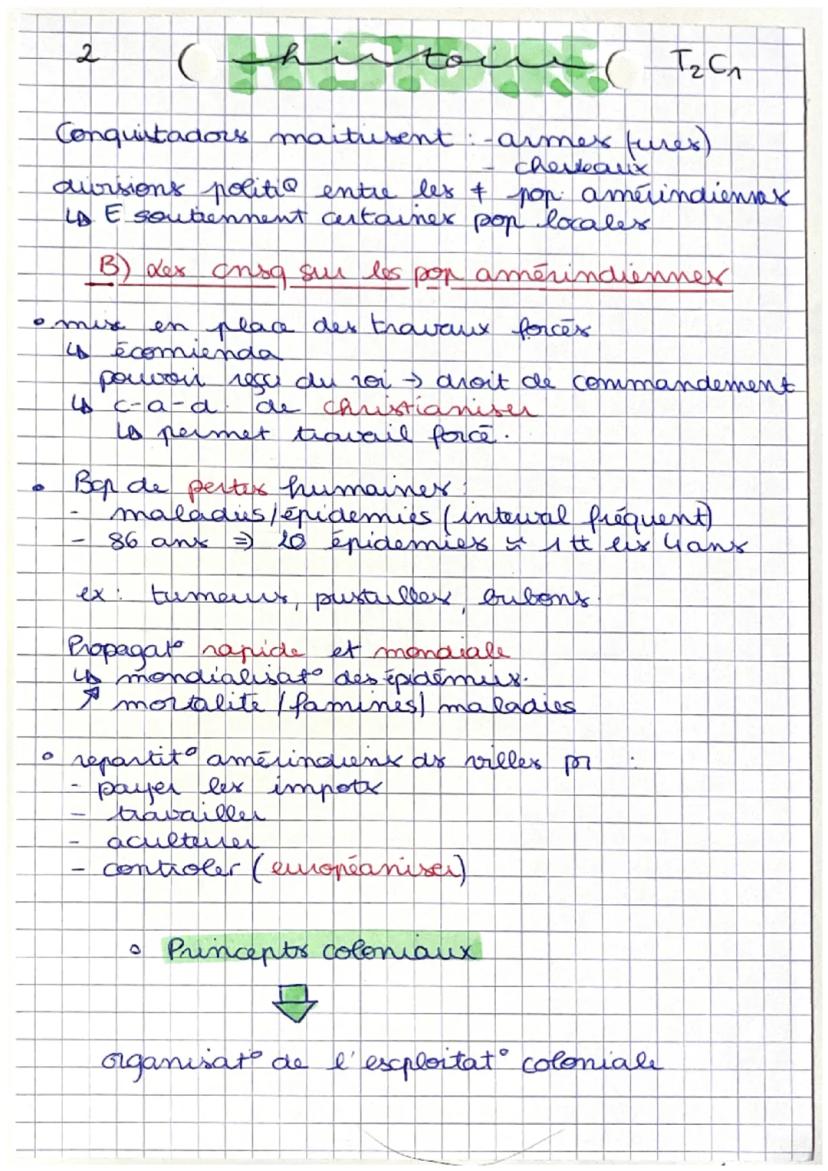 2 histoire T2C1
HISTOIRE
Conquistadors maitrisent : - armes (ures)
- chevaux
divisions politiQ entre les ≠ pop. amérindiennes
↳ E soutiennent certaines pop locales
B) Les cnsq sur les pop amérindiennes
• mise en place des travaux forcés
↳ écomienda
pouvoir reçu du roi → droit de commandement
↳ c-a-d. de christianiser
↳ permet travail forcé.
• Bcp de pertes humaines :
- maladies/épidemies (interval fréquent)
- 86 ans ⇒ 20 épidemies ≈ 1 tt les 4 ans
ex : tumeurs, pustulles, bubons.
Propagat° rapide et mondiale
↳ mondialisat° des épidémies.
↗ mortalité / famines / maladies
• repartit° amérindiens ds villes pr :
- payer les impots
- travailler
- aculturer
- controler (européaniser)
• Princepts coloniaux
⇩
organisat° de l'exploitat° coloniale